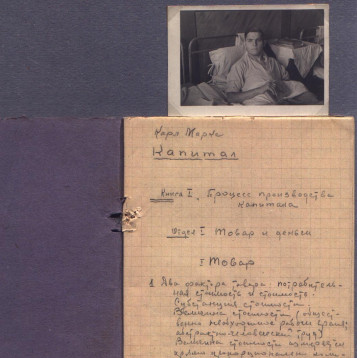 Карл Маркс
Капитал
Книга I. Процесс производства
капитала
Отдел I Товар и деньги
I Товар
1. Два фактора товара: потребитель-
ная стоимость и стоимость.
Субстанция стоимости.
Величина стоимости (общест-
венно необходимое рабочее время;
абстрактно-человеческий труд)
Величина стоимости измеряется